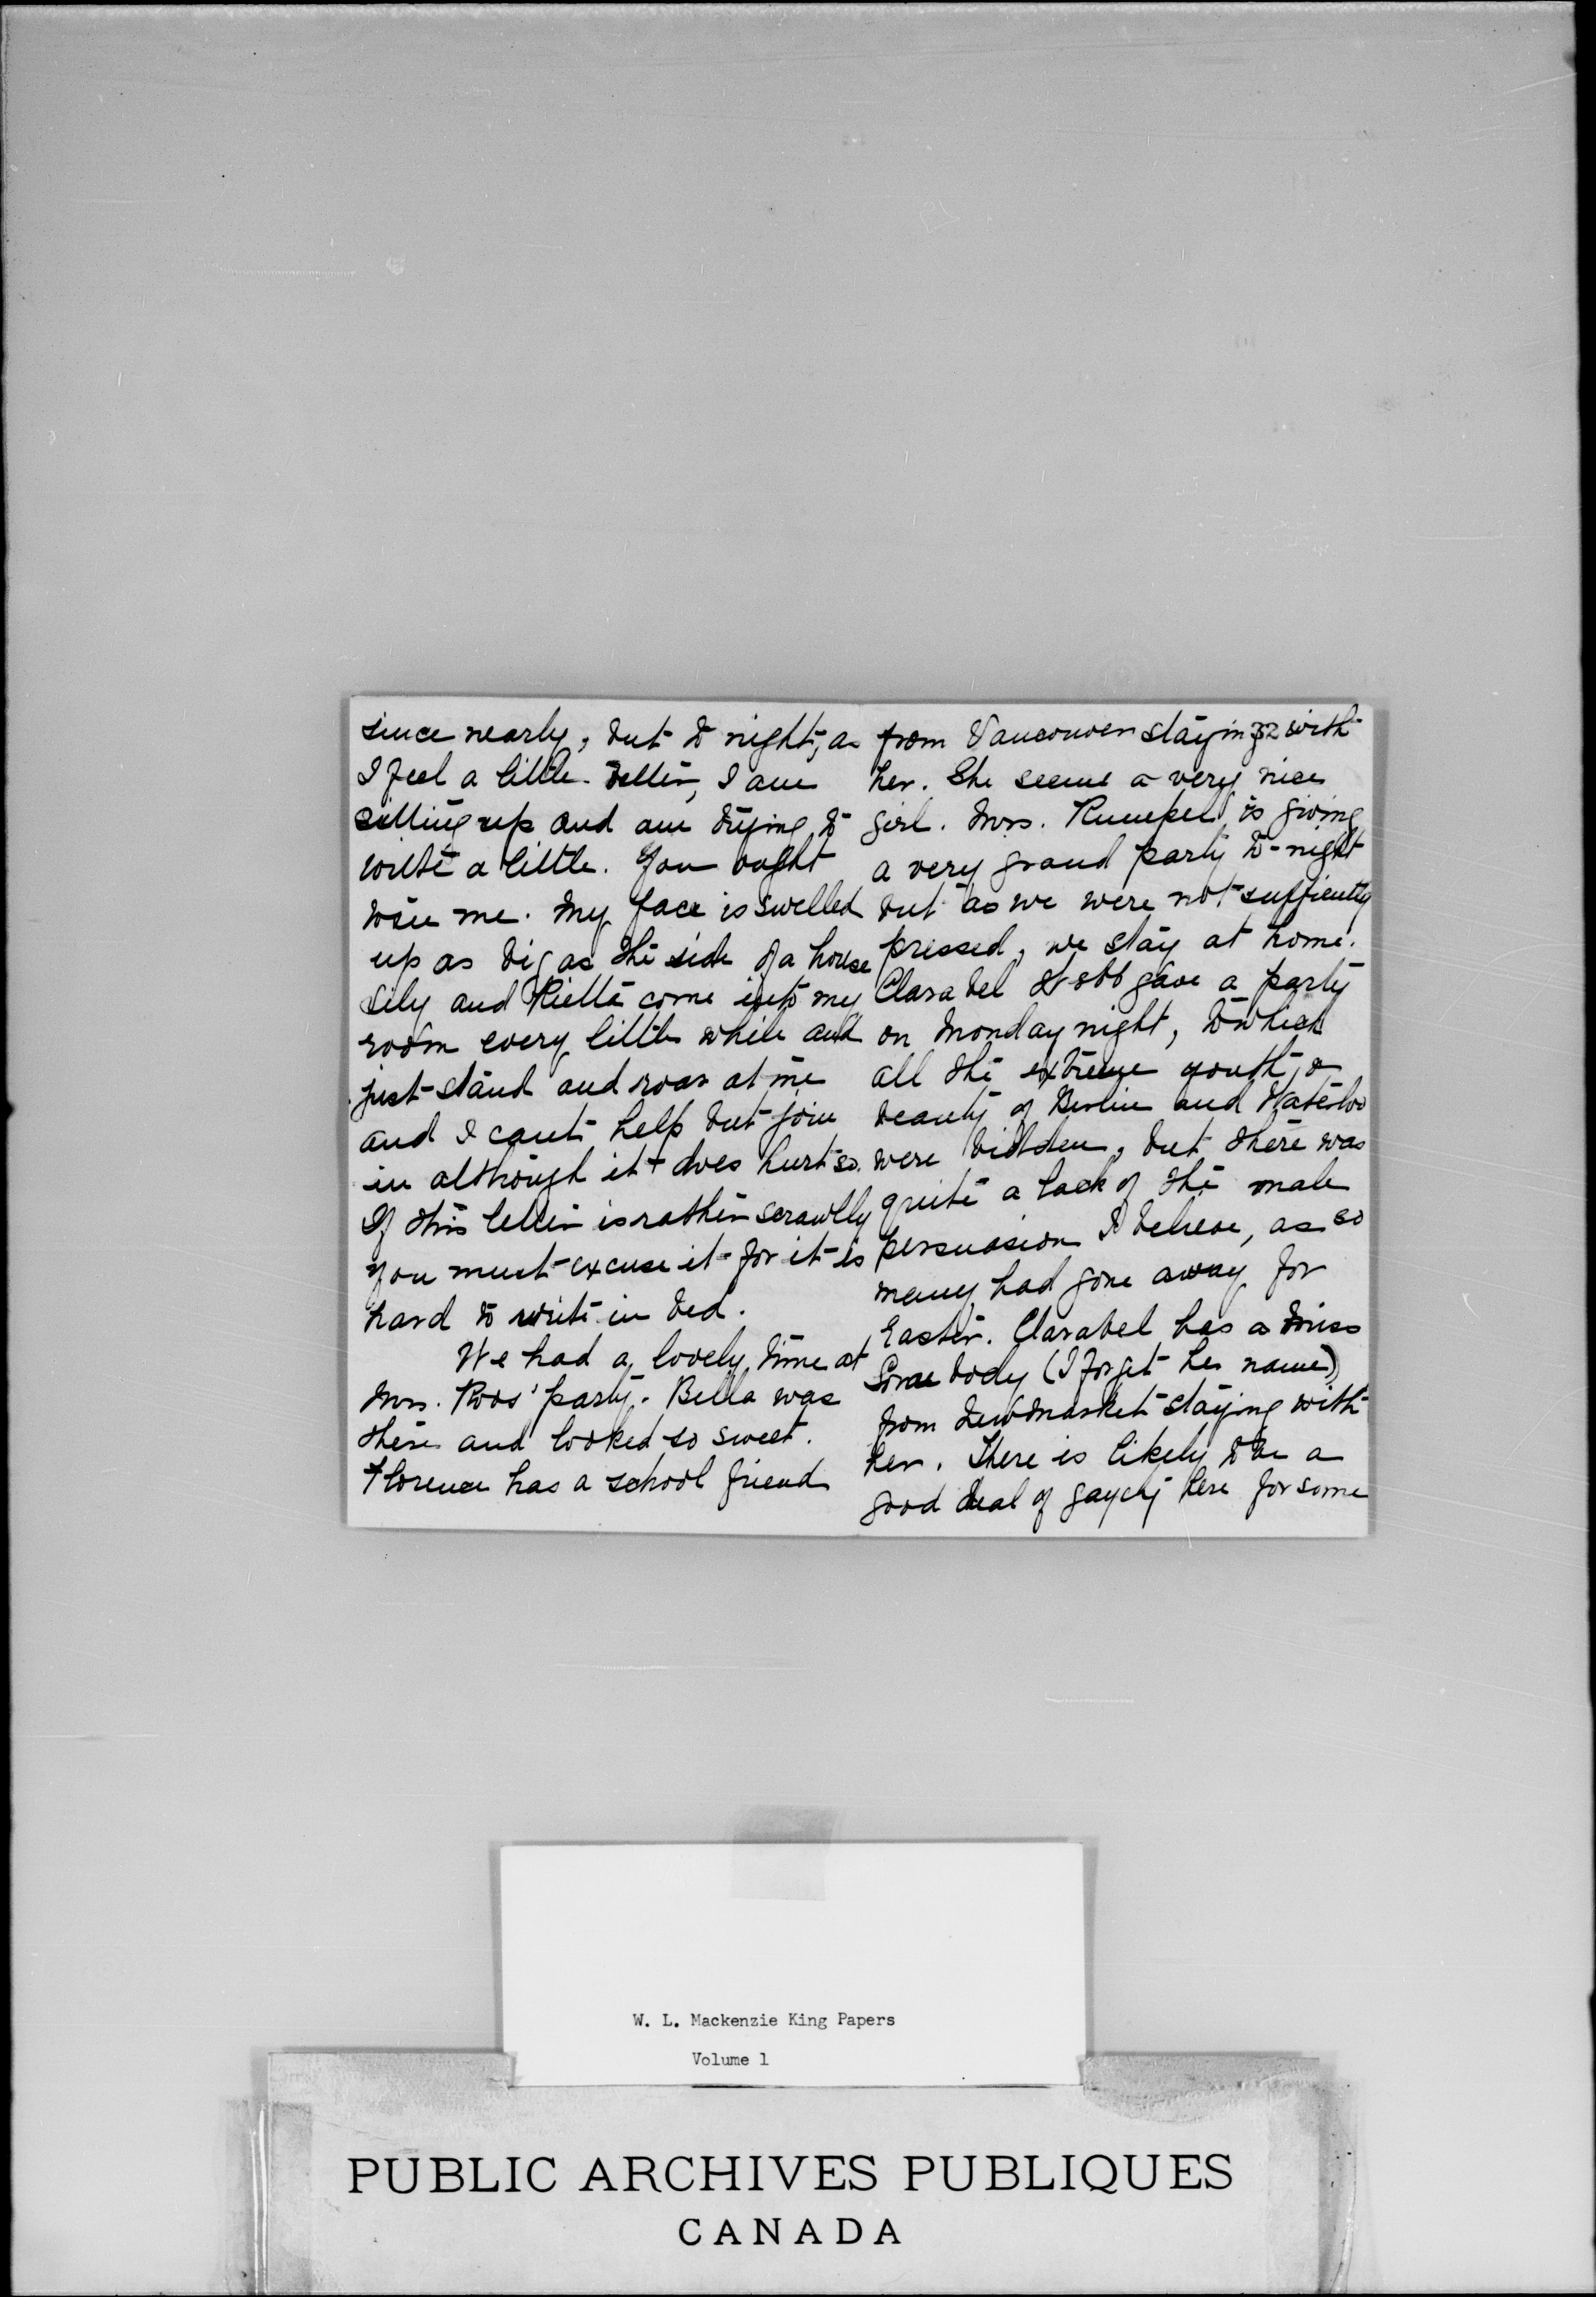 since nearly, but to night, as
I feel a little better, I am
sitting up and am trying to
write a little. You ought
to see me. My face is swelled
up as big as the side of a house
Lily and Rietta come into my
room every little while and
just stand and roar at me
and I cant help but join
in although it does hurt so.
If this letter is rather scrawlly
you must excuse it for it is
hard to write in bed.
We had a lovely time at
Mrs. Roos' party. Bella was
there and looked so sweet.
Florence has a school friend
from Vancouver staying with
32
her. She seems a very nice
girl. Mrs. Rumpel is giving
a very grand party to-night
but as we were not suffiently
pressed, we stay at home.
Clarabel gave a party
on Monday night, to which
all the extreme youth &
beauty of Berlin and Waterloo
were bidden, but there was
quite a lack of the male
persuasion I believe, as so
many had gone away for
Easter. Clarabel has a Miss
Some body (I forget her name)
from Newmarket staying with
her. There is likely to be a
good deal of gayety here for some
W. L. Mackenzie King Papers
Volume 1
PUBLIC ARCHIVES PUBLIQUES
CANADA